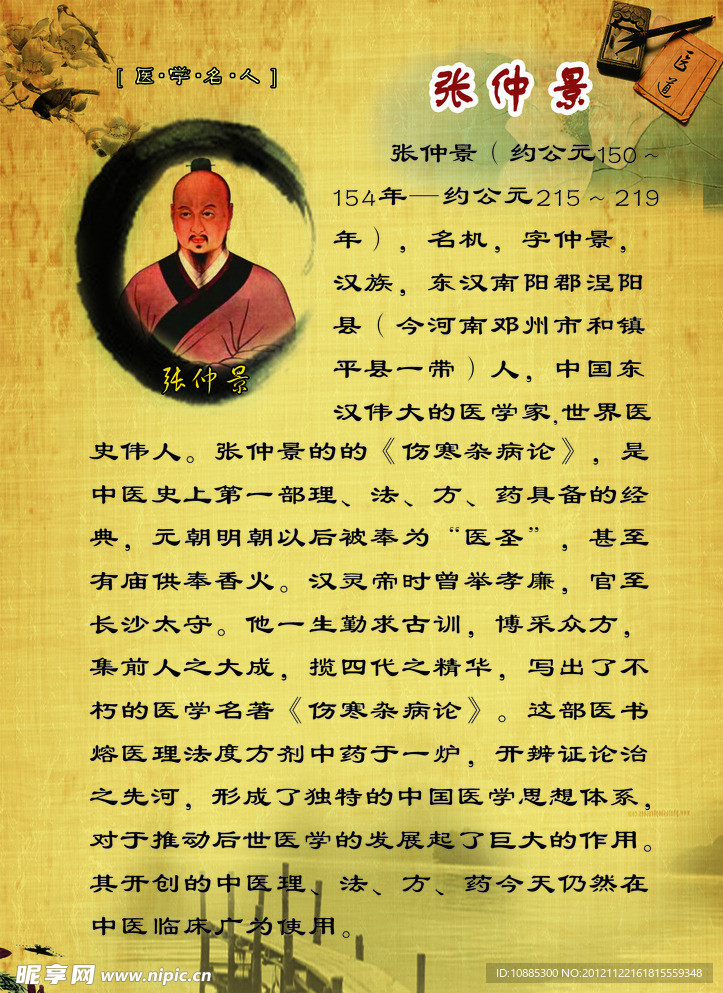 [ 医·学·名·人 ]
张仲景
医道
张仲景（约公元150～
154年—约公元215～219
年），名机，字仲景，
汉族，东汉南阳郡涅阳
县（今河南邓州市和镇
平县一带）人，中国东
汉伟大的医学家,世界医
张仲景
史伟人。张仲景的的《伤寒杂病论》，是
中医史上第一部理、法、方、药具备的经
典，元朝明朝以后被奉为“医圣”，甚至
有庙供奉香火。汉灵帝时曾举孝廉，官至
长沙太守。他一生勤求古训，博采众方，
集前人之大成，揽四代之精华，写出了不
朽的医学名著《伤寒杂病论》。这部医书
熔医理法度方剂中药于一炉，开辨证论治
之先河，形成了独特的中国医学思想体系，
对于推动后世医学的发展起了巨大的作用。
其开创的中医理、法、方、药今天仍然在
中医临床广为使用。
昵享网 www.nipic.cn
ID:10885300 NO:20121122161815559348